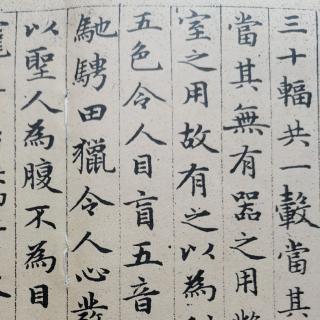 三十輻共一轂當其
當其無有器之用鑿
室之用故有之以為利
五色令人目盲五音
馳騁田獵令人心發
以聖人為腹不為目
寵